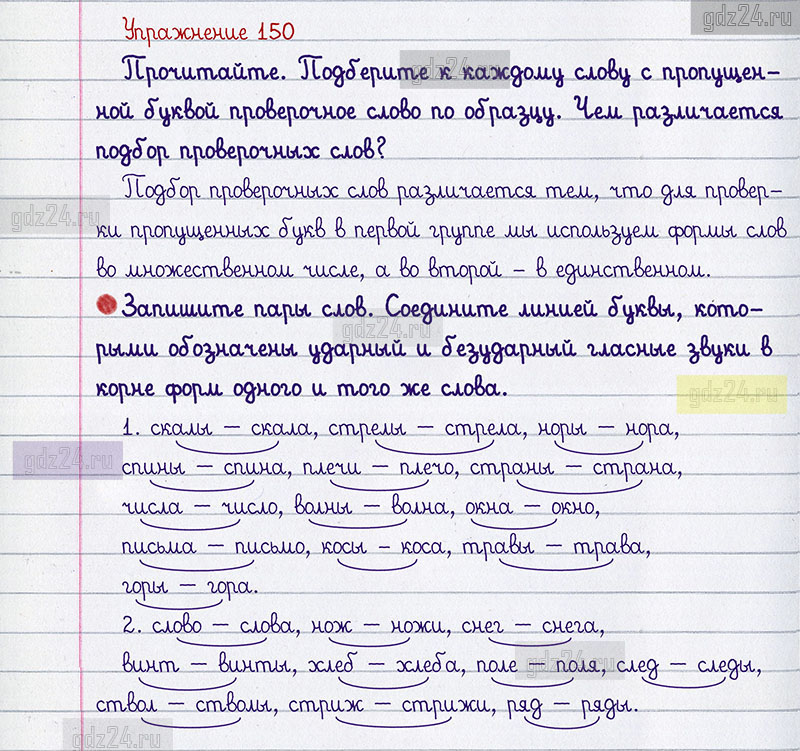 gdz24.ru
Упражнение 150
Прочитайте. Подберите к каждому слову с пропущен-
gdz24.ru
ной буквой проверочное слово по образцу. Чем различается
подбор проверочных слов?
Подбор проверочных слов различается тем, что для провер-
gdz24.ru
ки пропущенных букв в первой группе мы используем формы слов
во множественном числе, а во второй – в единственном.
Запишите пары слов. Соедините линией буквы, кото-
gdz24.ru
рыми обозначены ударный и безударный гласные звуки в
корне форм одного и того же слова.
gdz24.ru
1. скалы – скала, стрелы – стрела, норы – нора,
gdz24.ru
спины – спина, плечи – плечо, страны – страна,
числа – число, волны – волна, окна – окно,
письма – письмо, косы – коса, травы – трава,
горы – гора.
2. слово – слова, нож – ножи, снег – снега,
gdz24.ru
винт – винты, хлеб – хлеба, поле – поля, след – следы,
ствол – стволы, стриж – стрижи, ряд – ряды.
gdz24.ru